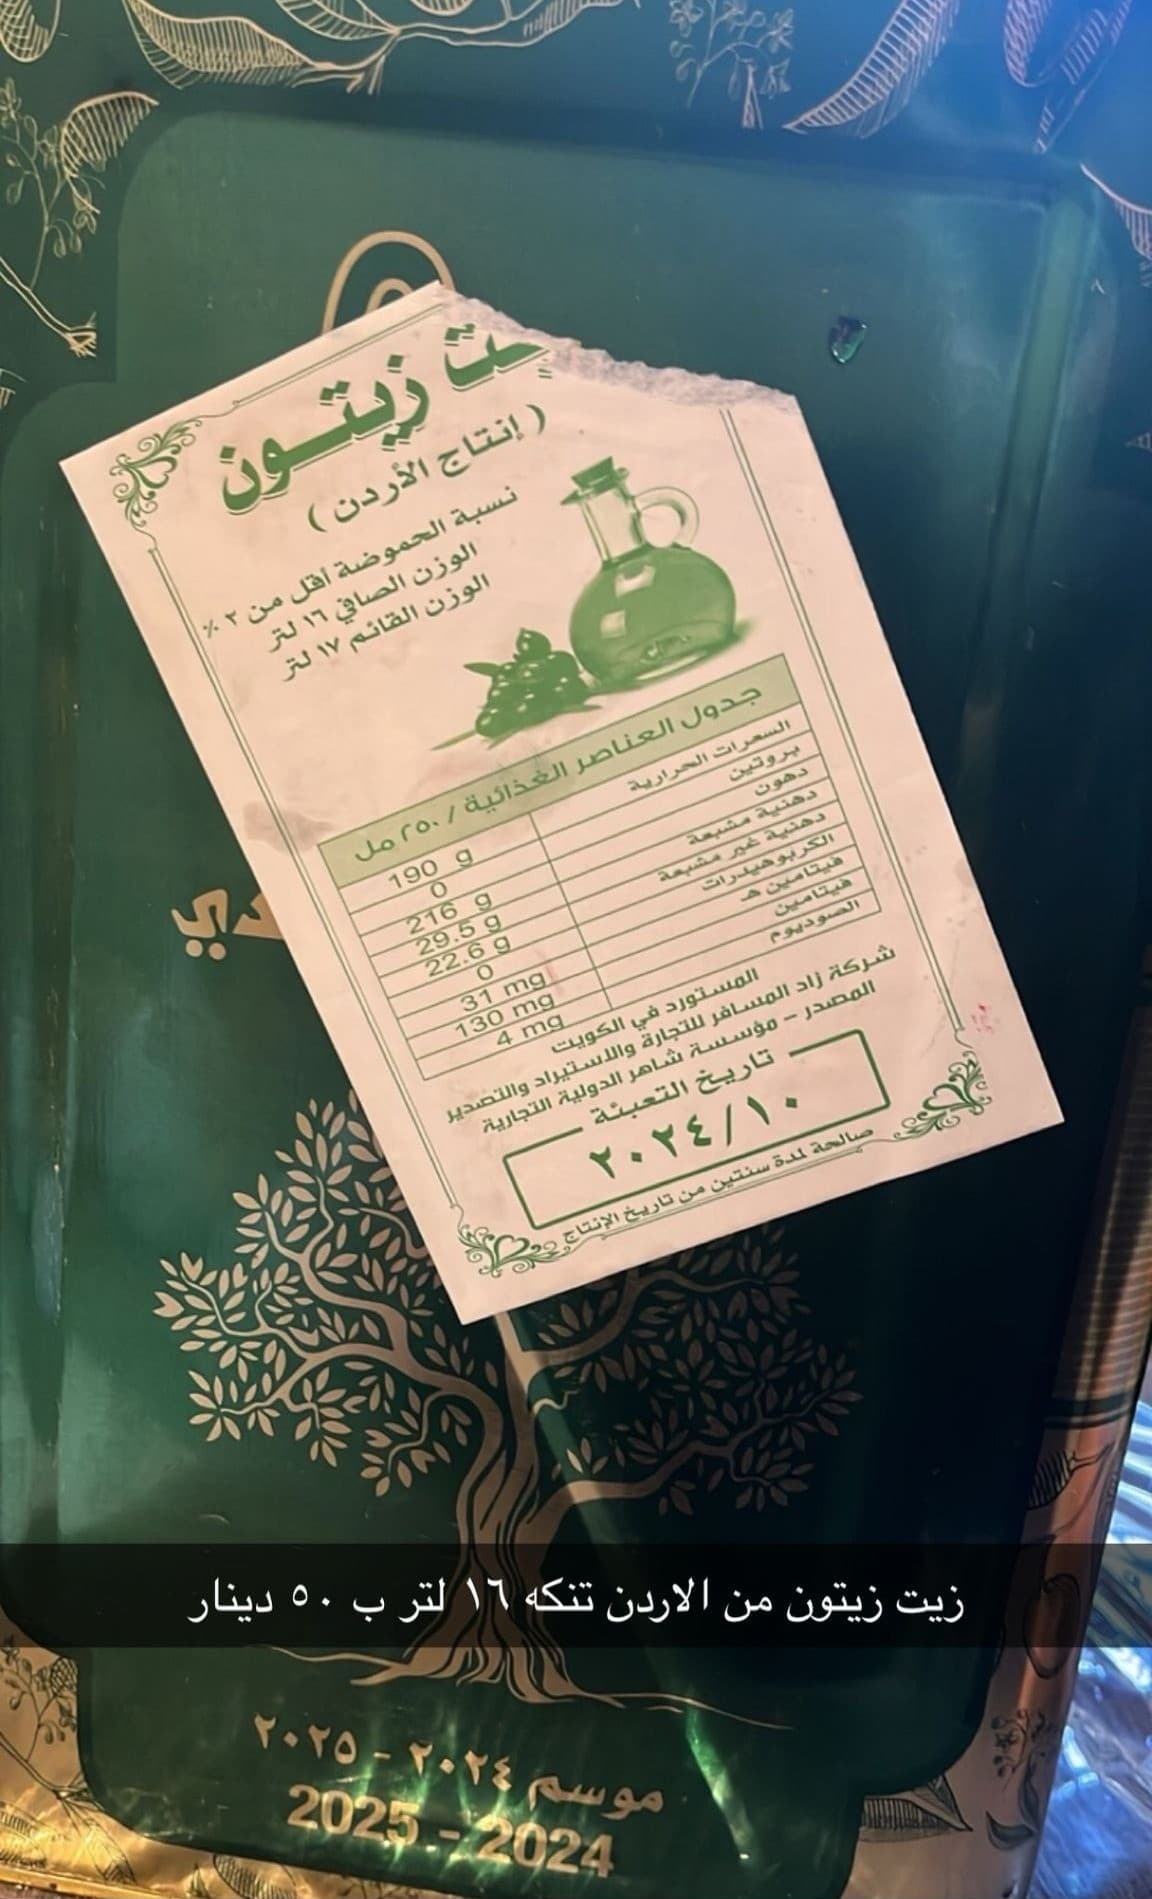 زيت زيتون
( إنتاج الأردن )
نسبة الحموضة أقل من ٢ %
الوزن الصافي ١٦ لتر
الوزن القائم ١٧ لتر
جدول العناصر الغذائية / ٢٥٠ مل
السعرات الحرارية 190 g
بروتين 0
دهون 216 g
دهنية مشبعة 29.5 g
دهنية غير مشبعة 22.6 g
الكربوهيدرات 0
فيتامين هـ 31 mg
فيتامين 130 mg
الصوديوم 4 mg
المستورد في الكويت
شركة زاد المسافر للتجارة والاستيراد والتصدير
المصدر - مؤسسة شاهر الدولية التجارية
تاريخ التعبئة
٢٠٢٤/١٠
صالحة لمدة سنتين من تاريخ الإنتاج
زيت زيتون من الاردن تنكه ١٦ لتر ب ٥٠ دينار
موسم ٢٠٢٤ - ٢٠٢٥
2025 - 2024